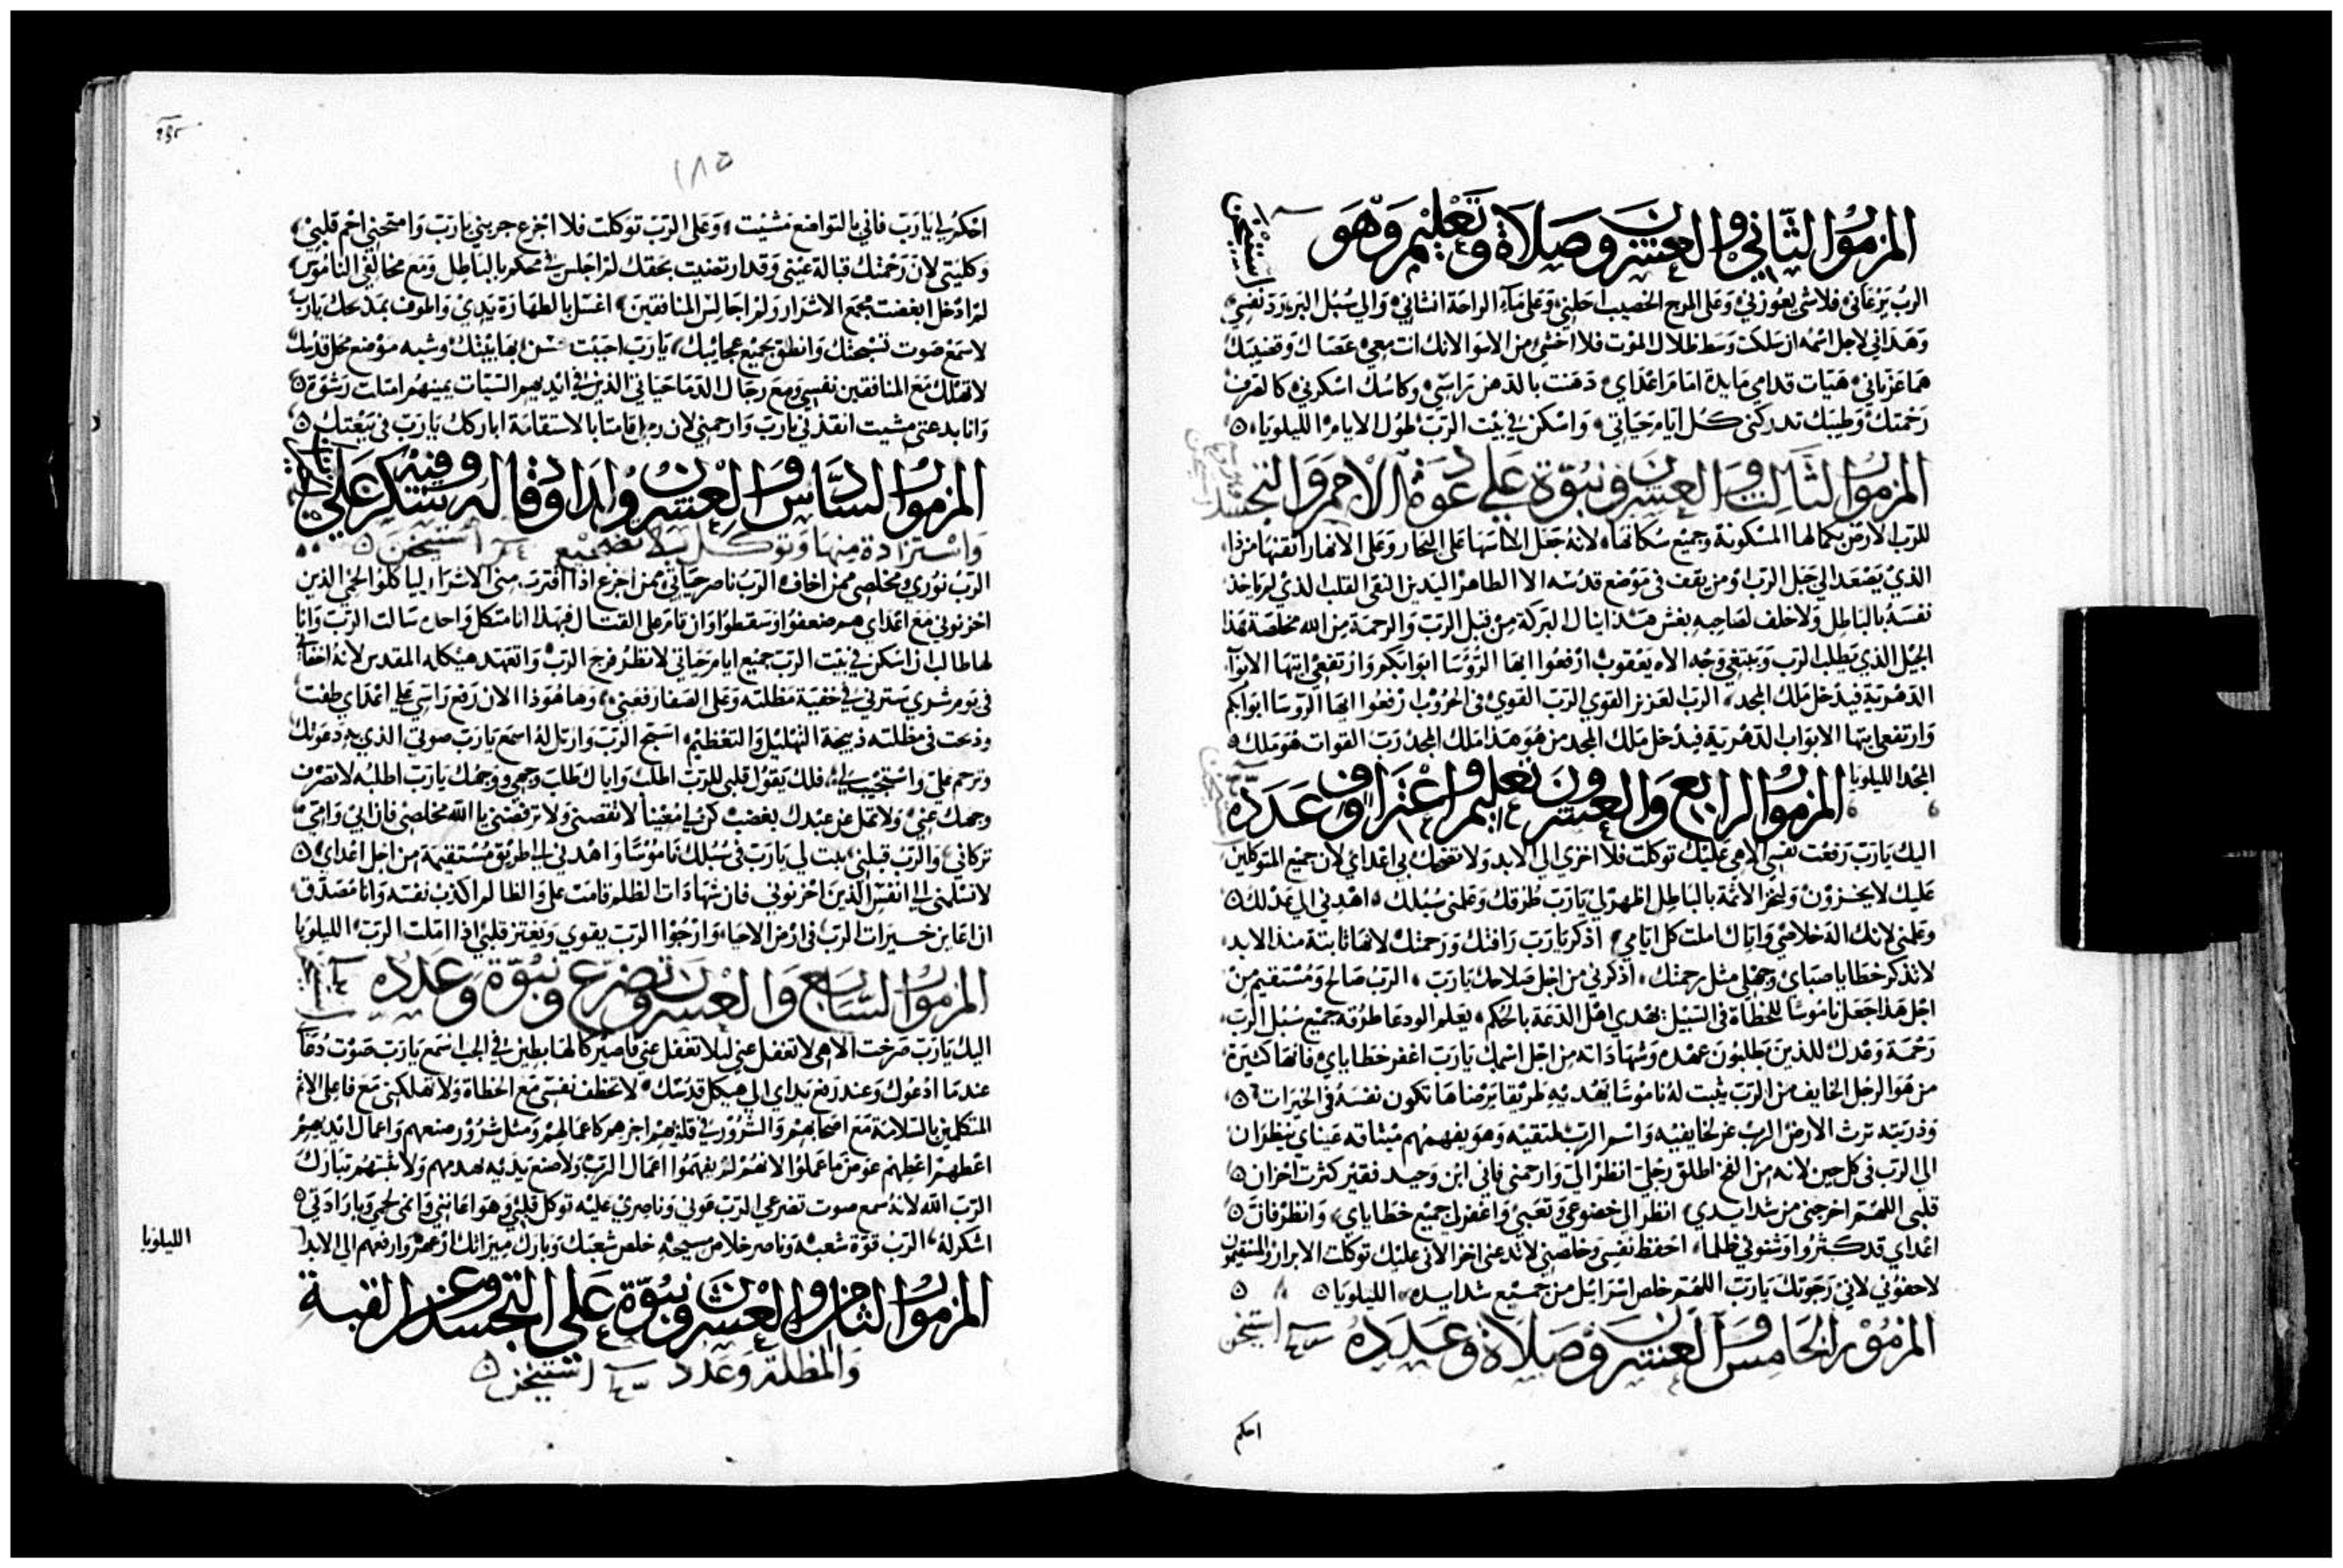 المزمور الثاني والعشرون صلاة وتعليم وهو
استيخن
الرب يرعاني فلا شي يعوزني وعلى المرج الخصيب احلني وعلى مآء الراحة انشاني والي سبل البر يرد نفسي
وهداني لاجل اسمه ان سلكت وسط ظلال الموت فلا اخشى من الاسوا لانك انت معي عصاك وقضيبك
هما عزياني هيات قدامي مايدة امام اعداي دهنت بالدهن راسي وكاسك اسكرني كالصرف
رحمتك وطيبك تدركني كل ايام حياتي واسكن في بيت الرب طول الايام الليلويا
المزمور الثالث والعشرون نبوة على دعوة الامم والتجسد
للرب الارض بكمالها المسكونة وجميع سكانها لانه جعل اساسها على البحار وعلى الانهار اتقنها من ذا
الذي يصعد الي جبل الرب او من يقف في موضع قدسه الا الطاهر اليدين النقي القلب الذي لم ياخذ
نفسه بالباطل ولا حلف لصاحبه بغش هذا ينال البركة من قبل الرب والرحمة من الله مخلصه هذا
الجيل الذي يطلب الرب ويبتغي وجه الاه يعقوب ارفعوا ايها الرؤسا ابوابكم وارتفعي ايتها الابوآب
الدهرية فيدخل ملك المجد الرب العزيز القوي الرب القوي في الحروب ارفعوا ايها الروسا ابوابكم
وارتفعي ايتها الابواب الدهرية فيدخل ملك المجد من هو هذا ملك المجد رب القوات هو ملك
المجد الليلويا
المزمور الرابع والعشرون تعليم واعتراف وعدده
اليك يارب رفعت نفسي الاهي عليك توكلت فلا اخزي الي الابد ولا تضحك بي اعداي لان جميع المتوكلين
عليك لا يخزون وليخز الاثمة بالباطل اظهر لي يارب طرقك وعلمني سبلك اهدني الي عدلك
وعلمني لانك اله خلاصي واياك املت كل ايامي اذكر يارب رافتك ورحمتك لانها ثابتة منذ الابد
لا تذكر خطايا صباي وجهلي مثل رحمتك اذكرني من اجل صلاحك يارب الرب صالح ومستقيم من
اجل هذا جعل ناموسا للخطاة في السبيل يهدي اهل الدعة بالحكم يعلم الودعا طرقه جميع سبل الرب
رحمة وعدل للذين يطلبون عهده وشهاداته من اجل اسمك يارب اغفر خطاياي فانها كثيرة
من هو الرجل الخايف من الرب يثبت له ناموسا يهديه طريقا يرضاها تكون نفسه في الخيرات
وذريته ترث الارض الرب عز لخايفيه واسم الرب لمتقيه وهو يفهمهم ميثاقه عيناي ينظران
الي الرب في كل حين لانه من الفخ اطلق رجلي انظر الي وارحمني فاني ابن وحيد فقير كثرت احزان
قلبي اللهم اخرجني من شدايدي انظر الى خضوعي وتعبي واغفر لي جميع خطاياي وانظر فان
اعداي قد كثروا وشنوني ظلما احفظ نفسي وخلصني لا تدعني اخز لاني عليك توكلت الابرار والمستقيمون
لاحفوني لاني رجوتك يارب اللهم خلص اسرائيل من جميع شدايده الليلويا
المزمور الخامس والعشرون صلاة وعدده استيخن
احكم
١٨٥
احكم لي يارب فاني بالتواضع مشيت وعلى الرب توكلت فلا اجزع جربني يارب وامتحني احم قلبي
وكليتي لان رحمتك قبالة عيني وقد ارتضيت بحقك لم اجلس في محكم بالباطل ومع مخالفي الناموس
لم ادخل ابغضت مجمع الاشرار ولم اجالس المنافقين اغسل بالطهارة يدي واطوف بمذبحك يارب
لاسمع صوت تسبحتك وانطق بجميع عجايبك يارب احببت حسن بها بيتك وشبه موضع محل قدسك
لا تهلك مع المنافقين نفسي ومع رجال الدما حياتي الذين في ايديهم السيات يمينهم امتلت رشوة
وانا بدعتي مشيت انقذني يارب وارحمني لان رجل قامتا بالاستقامة اباركك يارب في بيعتك
المزمور السادس والعشرون لداود قاله وفيه شكر على
واستزادة منها وتوكل استيخن
الرب نوري ومخلصي ممن اخاف الرب ناصر حياتي ممن اجزع اذا اقترب مني الاشرار لياكلوا لحمي الذين
احزنوني مع اعداي هم ضعفوا وسقطوا وان قام علي القتال فبهذا انا متكل واحدة سالت الرب وانا
لها طالب ان اسكن في بيت الرب جميع ايام حياتي لانظر فرح الرب واتعهد هيكله المقدس لانه اخفا
في يوم شري سترني في خفية مظلته وعلى الصفا رفعني وها هوذا الان رفع راسي علي اعداي طفت
وذبحت في مظلته ذبيحة التهليل والتعظيم اسبح الرب وارتل له اسمع يارب صوتي الذي به دعوتك
وترحم علي واستجيب لي فلك يقول قلبي للرب اطلب واياك طلب وجهي ووجهك يارب اطلبه لا تصرف
وجهك عني ولا تمل عن عبدك بغضب كن لي مغيثا لا تقصني ولا ترفضني يا الله مخلصي فان ابي وامي
تركاني والرب قبلني يثبت لي يارب في سبلك ناموسا واهدني الي طريق مستقيمة من اجل اعداي
لا تسلمني الي انفس الذين احزنوني فان شهادات الظلم قامت علي والظالم اكذب نفسه وانا مصدق
ان اعاين خيرات الرب في ارض الاحيا وارجوا الرب يقوي ويعتز قلبي اذا املت الرب الليلويا
المزمور السابع والعشرون تضرع ونبوة وعدده
اليك يارب صرخت الاهي لا تغفل عني ليلا تغفل عني فاصير كالهابطين في الجب اسمع يارب صوت دعآ
عندما ادعوك وعند رفع يداي الي هيكل قدسك لا تخطف نفسي مع الخطاة ولا تهلكني مع فاعلي الاثم
المتكلمين بالسلامة مع اصحابهم والشرور في قلوبهم اجزهم كاعمالهم ومثل شرور صنعهم واعمال ايديهم
اعطهم اعطهم عوض ما عملوا لانهم لم يفهموا اعمال الرب ولا صنع يديه يهدمهم ولا يبنيهم تبارك
الرب الله لانه سمع صوت تضرعي الرب عوني وناصري عليه توكل قلبي وهو اعانني وانمى لحمي وبارادتي
اشكر له الرب قوة شعبه وناصر خلاص مسيحه خلص شعبك وبارك ميراثك ارعهم وارفعهم الي الابد
الليلويا
المزمور الثامن والعشرون نبوة على التجسد وعن القبة
والمظلة وعدد استيخن